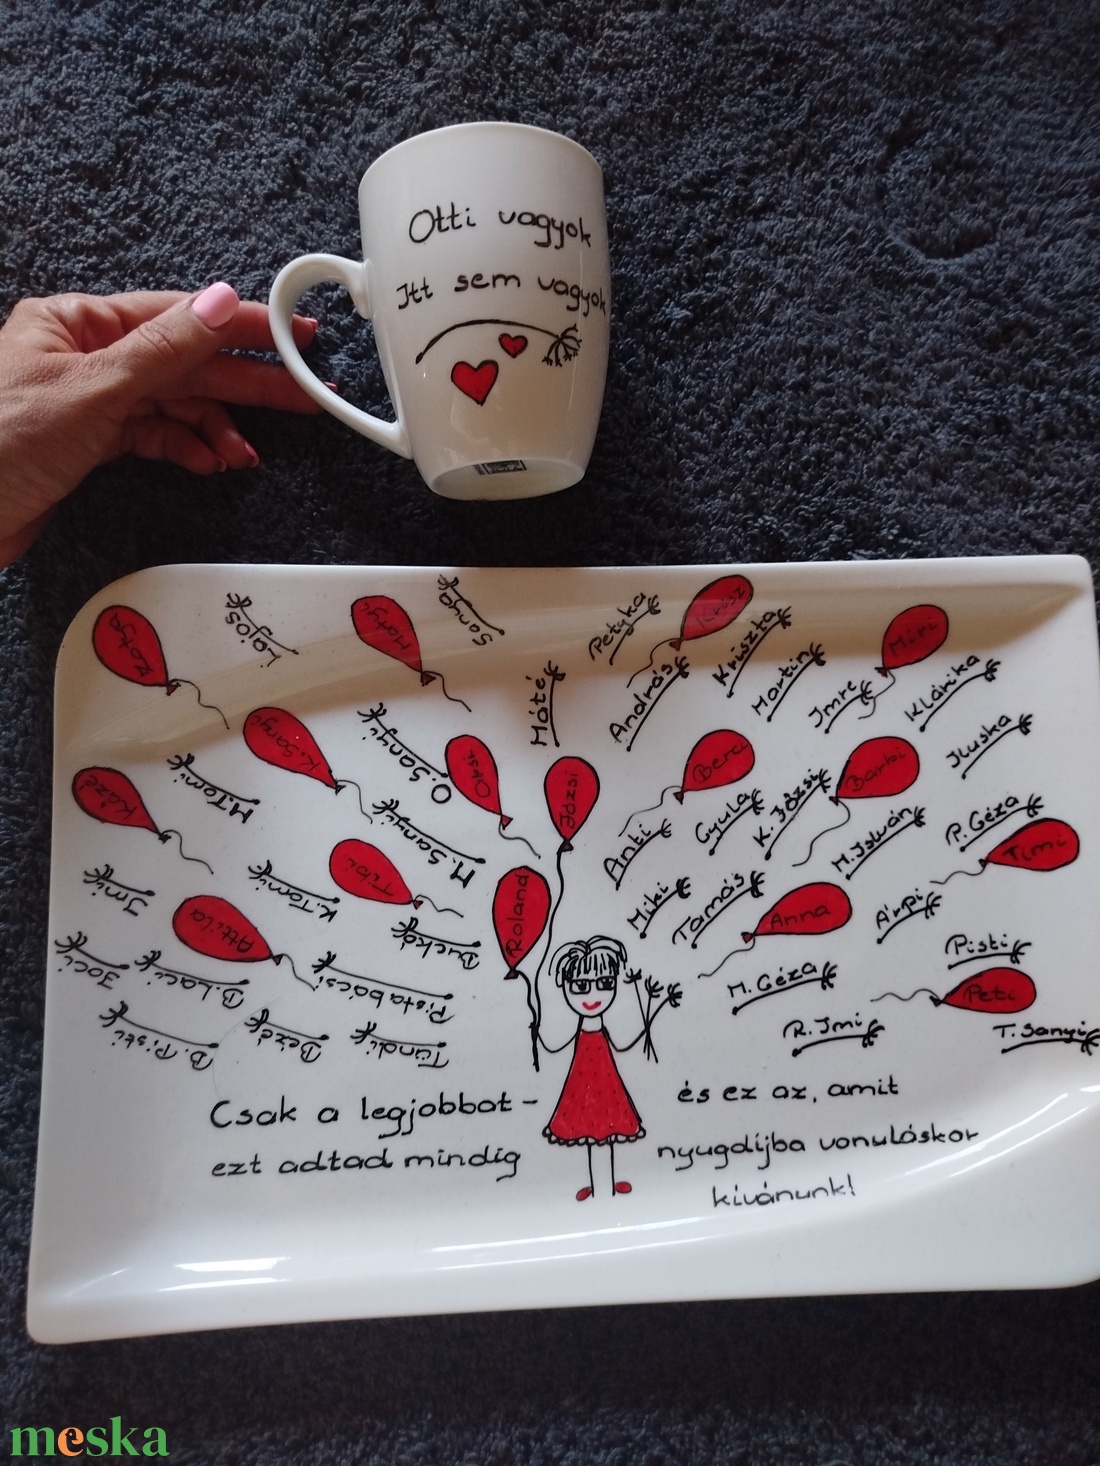 Otti vagyok
Itt sem vagyok
Zotya
Lajos
Matyi
Sanya
Petyka
Krisz
Kriszta
Miri
Máté
András
Martin
Imre
Klárika
Iluska
K.Sanyi
O.Sanyi
Okszi
Józsi
Berci
Barbi
Kázé
M.Tomi
M.Sanyi
Anti
Gyula
K.Józsi
M.István
P.Géza
Timi
Imi
K.Tomi
Tibi
Roland
Miki
Tamás
Anna
Árpi
Attila
Buckó
Joci
B.Laci
Pista bácsi
M.Géza
Pisti
Peti
B.Pisti
Bezé
Tündi
R.Imi
T.Sanyi
Csak a legjobbat -
ezt adtad mindig
és ez az, amit
nyugdíjba vonuláskor
kívánunk!
meska